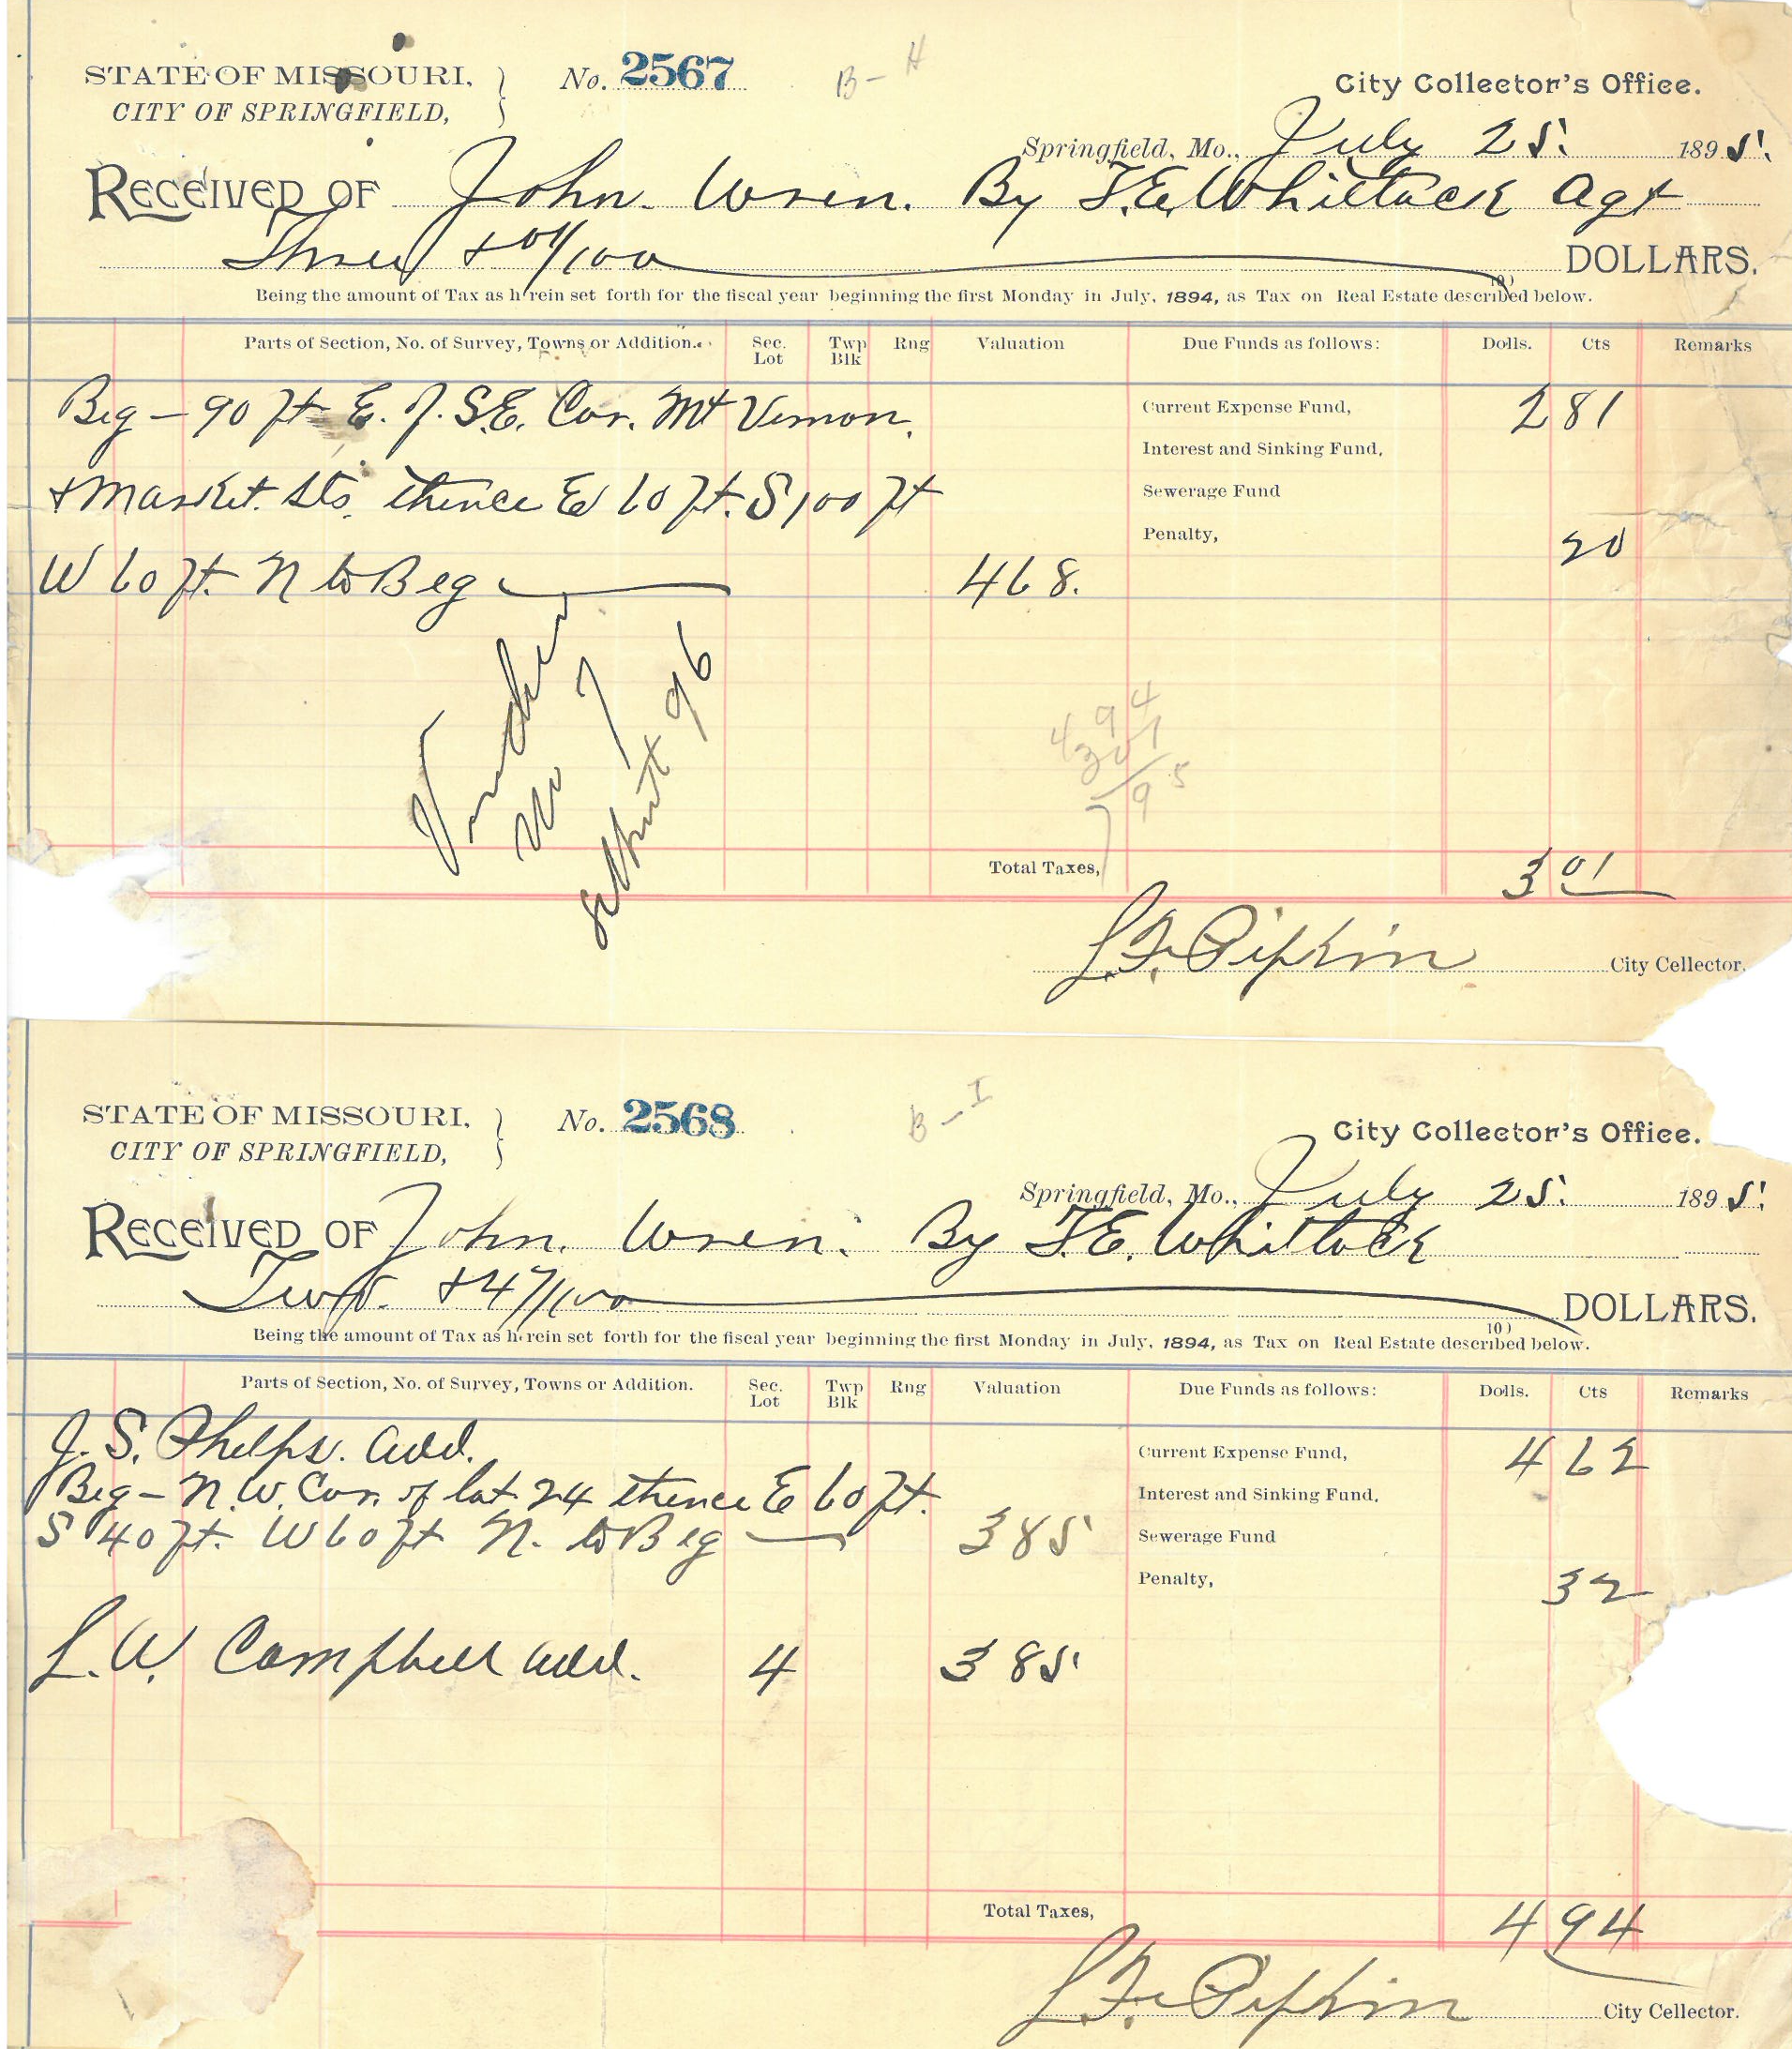 STATE OF MISSOURI, } No. 2567 B-H City Collector's Office.
CITY OF SPRINGFIELD,
Springfield, Mo., July 25. 1895.
RECEIVED OF John Wren. By F.E. Whitlock Agt
Three & 01/100 DOLLARS.
Being the amount of Tax as h rein set forth for the fiscal year beginning the first Monday in July, 1894, as Tax on Real Estate described below.
Parts of Section, No. of Survey, Towns or Addition. Sec. Lot Twp Blk Rng Valuation Due Funds as follows: Dolls. Cts Remarks
Beg - 90 ft E. of S.E. Cor. Mt Vernon. Current Expense Fund, 2 81
Interest and Sinking Fund,
& Market. Sts. thence E 60 ft. S 100 ft Sewerage Fund
Penalty, 20
W 60 ft. N to Beg 468.
No 7
96
4 94
3 01
7 95
Total Taxes, 3 01
L.F. Pipkin City Cellector.
STATE OF MISSOURI, } No. 2568 B-I City Collector's Office.
CITY OF SPRINGFIELD,
Springfield, Mo., July 25. 1895.
RECEIVED OF John. Wren. By F.E. Whitlock
Two. & 47/100 DOLLARS.
Being the amount of Tax as h rein set forth for the fiscal year beginning the first Monday in July, 1894, as Tax on Real Estate described below.
Parts of Section, No. of Survey, Towns or Addition. Sec. Lot Twp Blk Rng Valuation Due Funds as follows: Dolls. Cts Remarks
J. S. Phelps. Add. Current Expense Fund, 4 62
Beg - N.W. Cor. of lot 24 thence E 60 ft. Interest and Sinking Fund,
S 40 ft. W 60 ft N. to Beg 385 Sewerage Fund
Penalty, 32
L.W. Campbell Add. 4 385
Total Taxes, 4 94
L.F. Pipkin City Cellector.